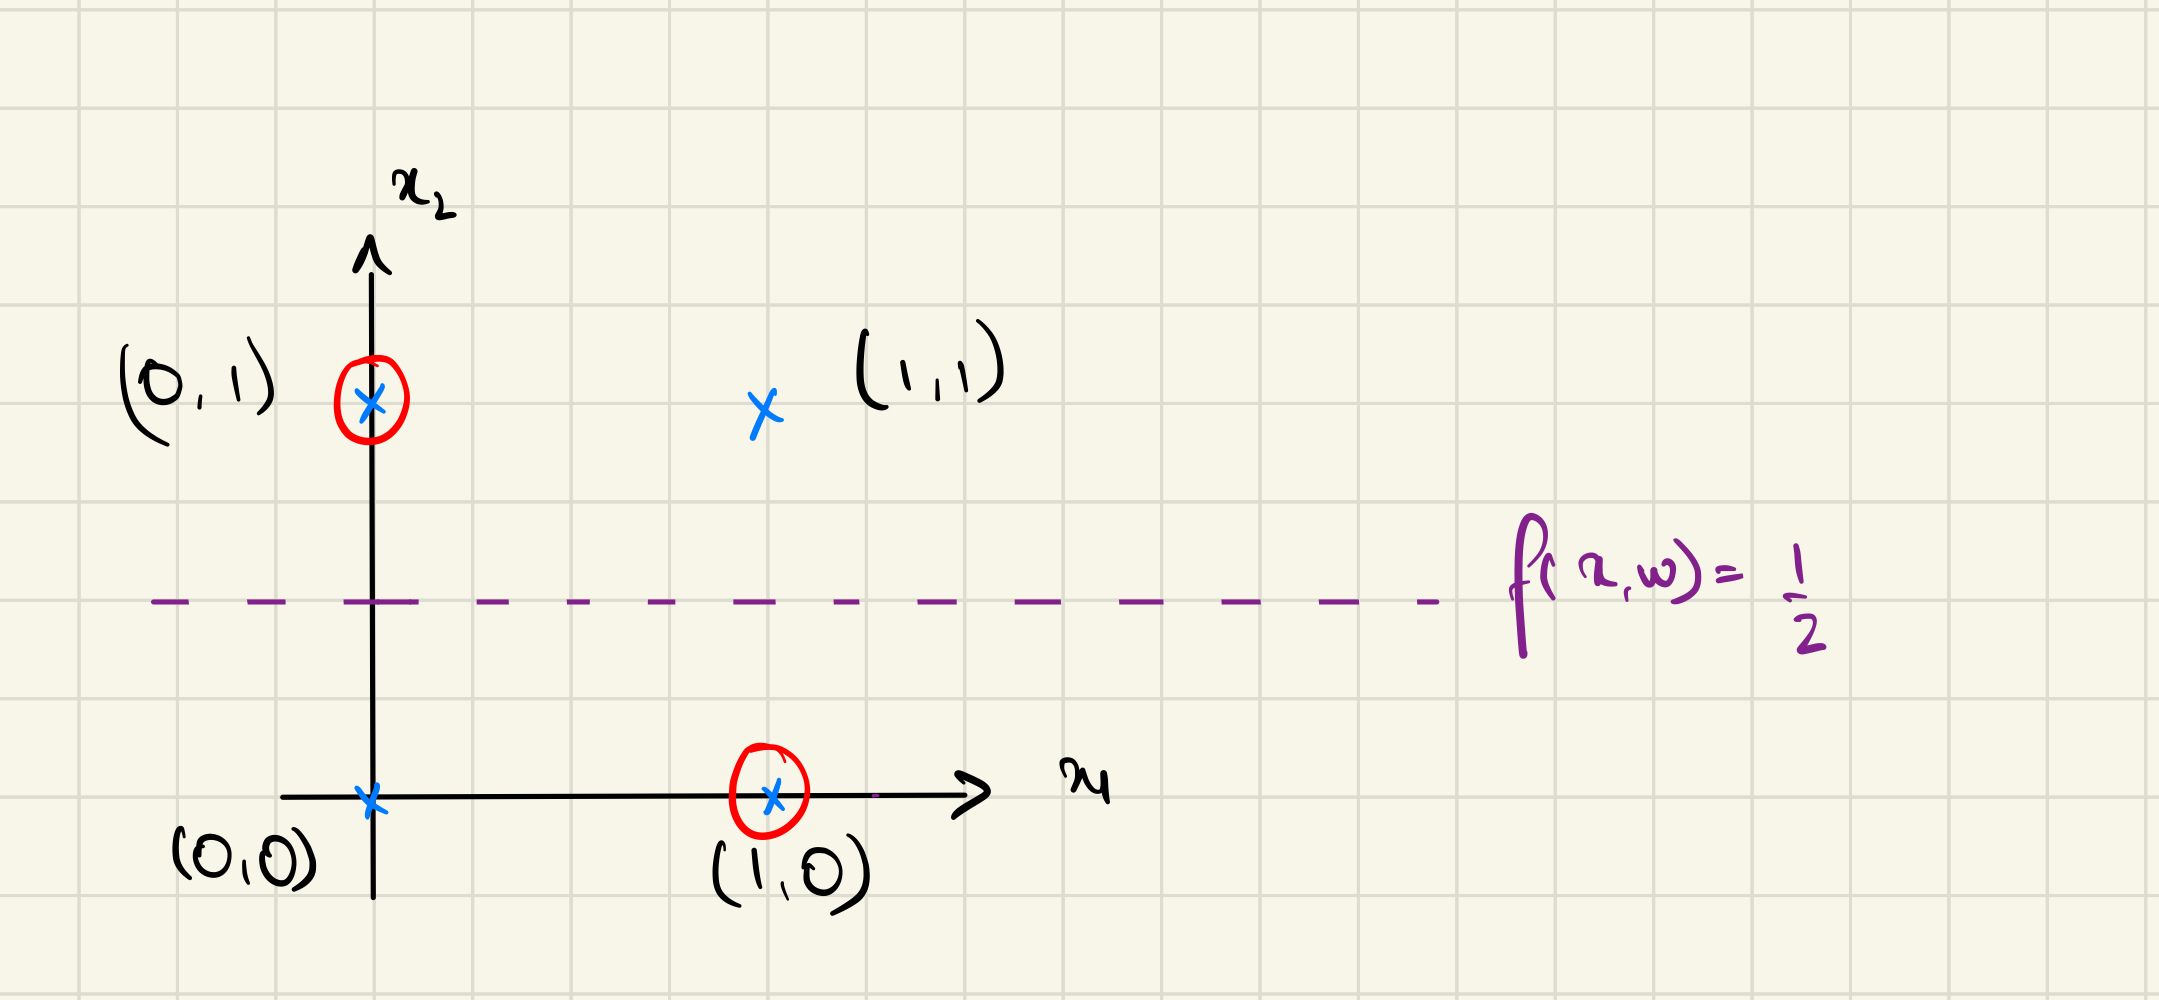 x₂
(0,1)
(1,1)
f(x,w) = 1/2
x₁
(0,0)
(1,0)